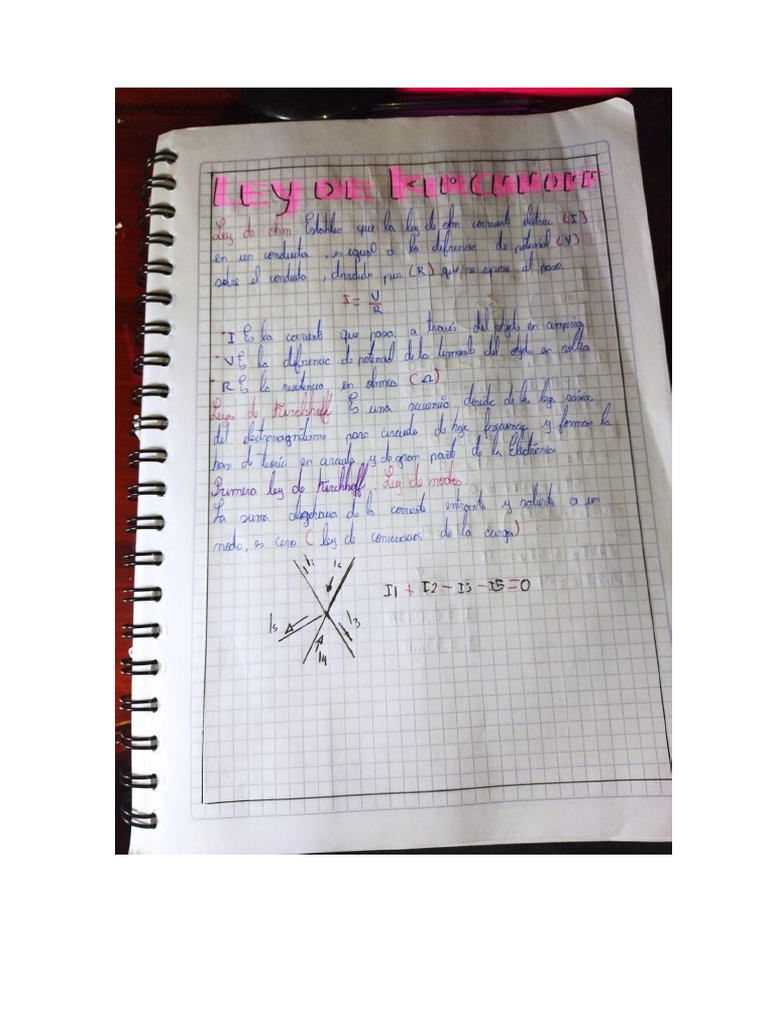 LEY DE KIRCHHOFF
Ley de ohm Establec que la ley de ohm corriente eléctric (I)
en un conducto, es igual a la difrencia de potencial (V)
sobre el conducto, dividido por (R) que se opone al paso.
I = V
R
• I Es la corriente que pasa a través del objeto en amperios
• V Es la difrenci de potencial de la terminals del objeto en voltios
• R Es la resistencia en ohmios (Ω)
Leyes de Kirchhoff Es una de las leyes
del electromagnetismo para circuito de baja frecuencia y forman la
base de teoría en circuito y de gran parte de la Electrónica
Primera ley de Kirchhoff. Ley de nodos
La suma de la corriente entrante y saliente a un
nodo, es cero (ley de de la carga)
I1 I2
I5 I3
I4
I1 + I2 - I3 - I5 = 0